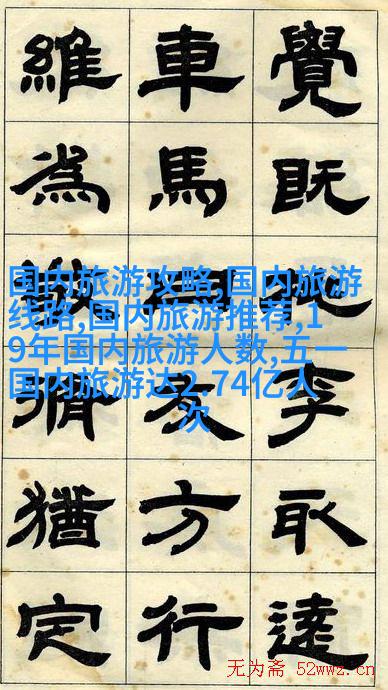 覺既李取達
車馬友方行
維為猶定
国内旅游攻略,国内旅游
线路,国内旅游推荐,1
9年国内旅游人数,五一
国内旅游达2.74亿人
次
无为斋 52wwz.cn